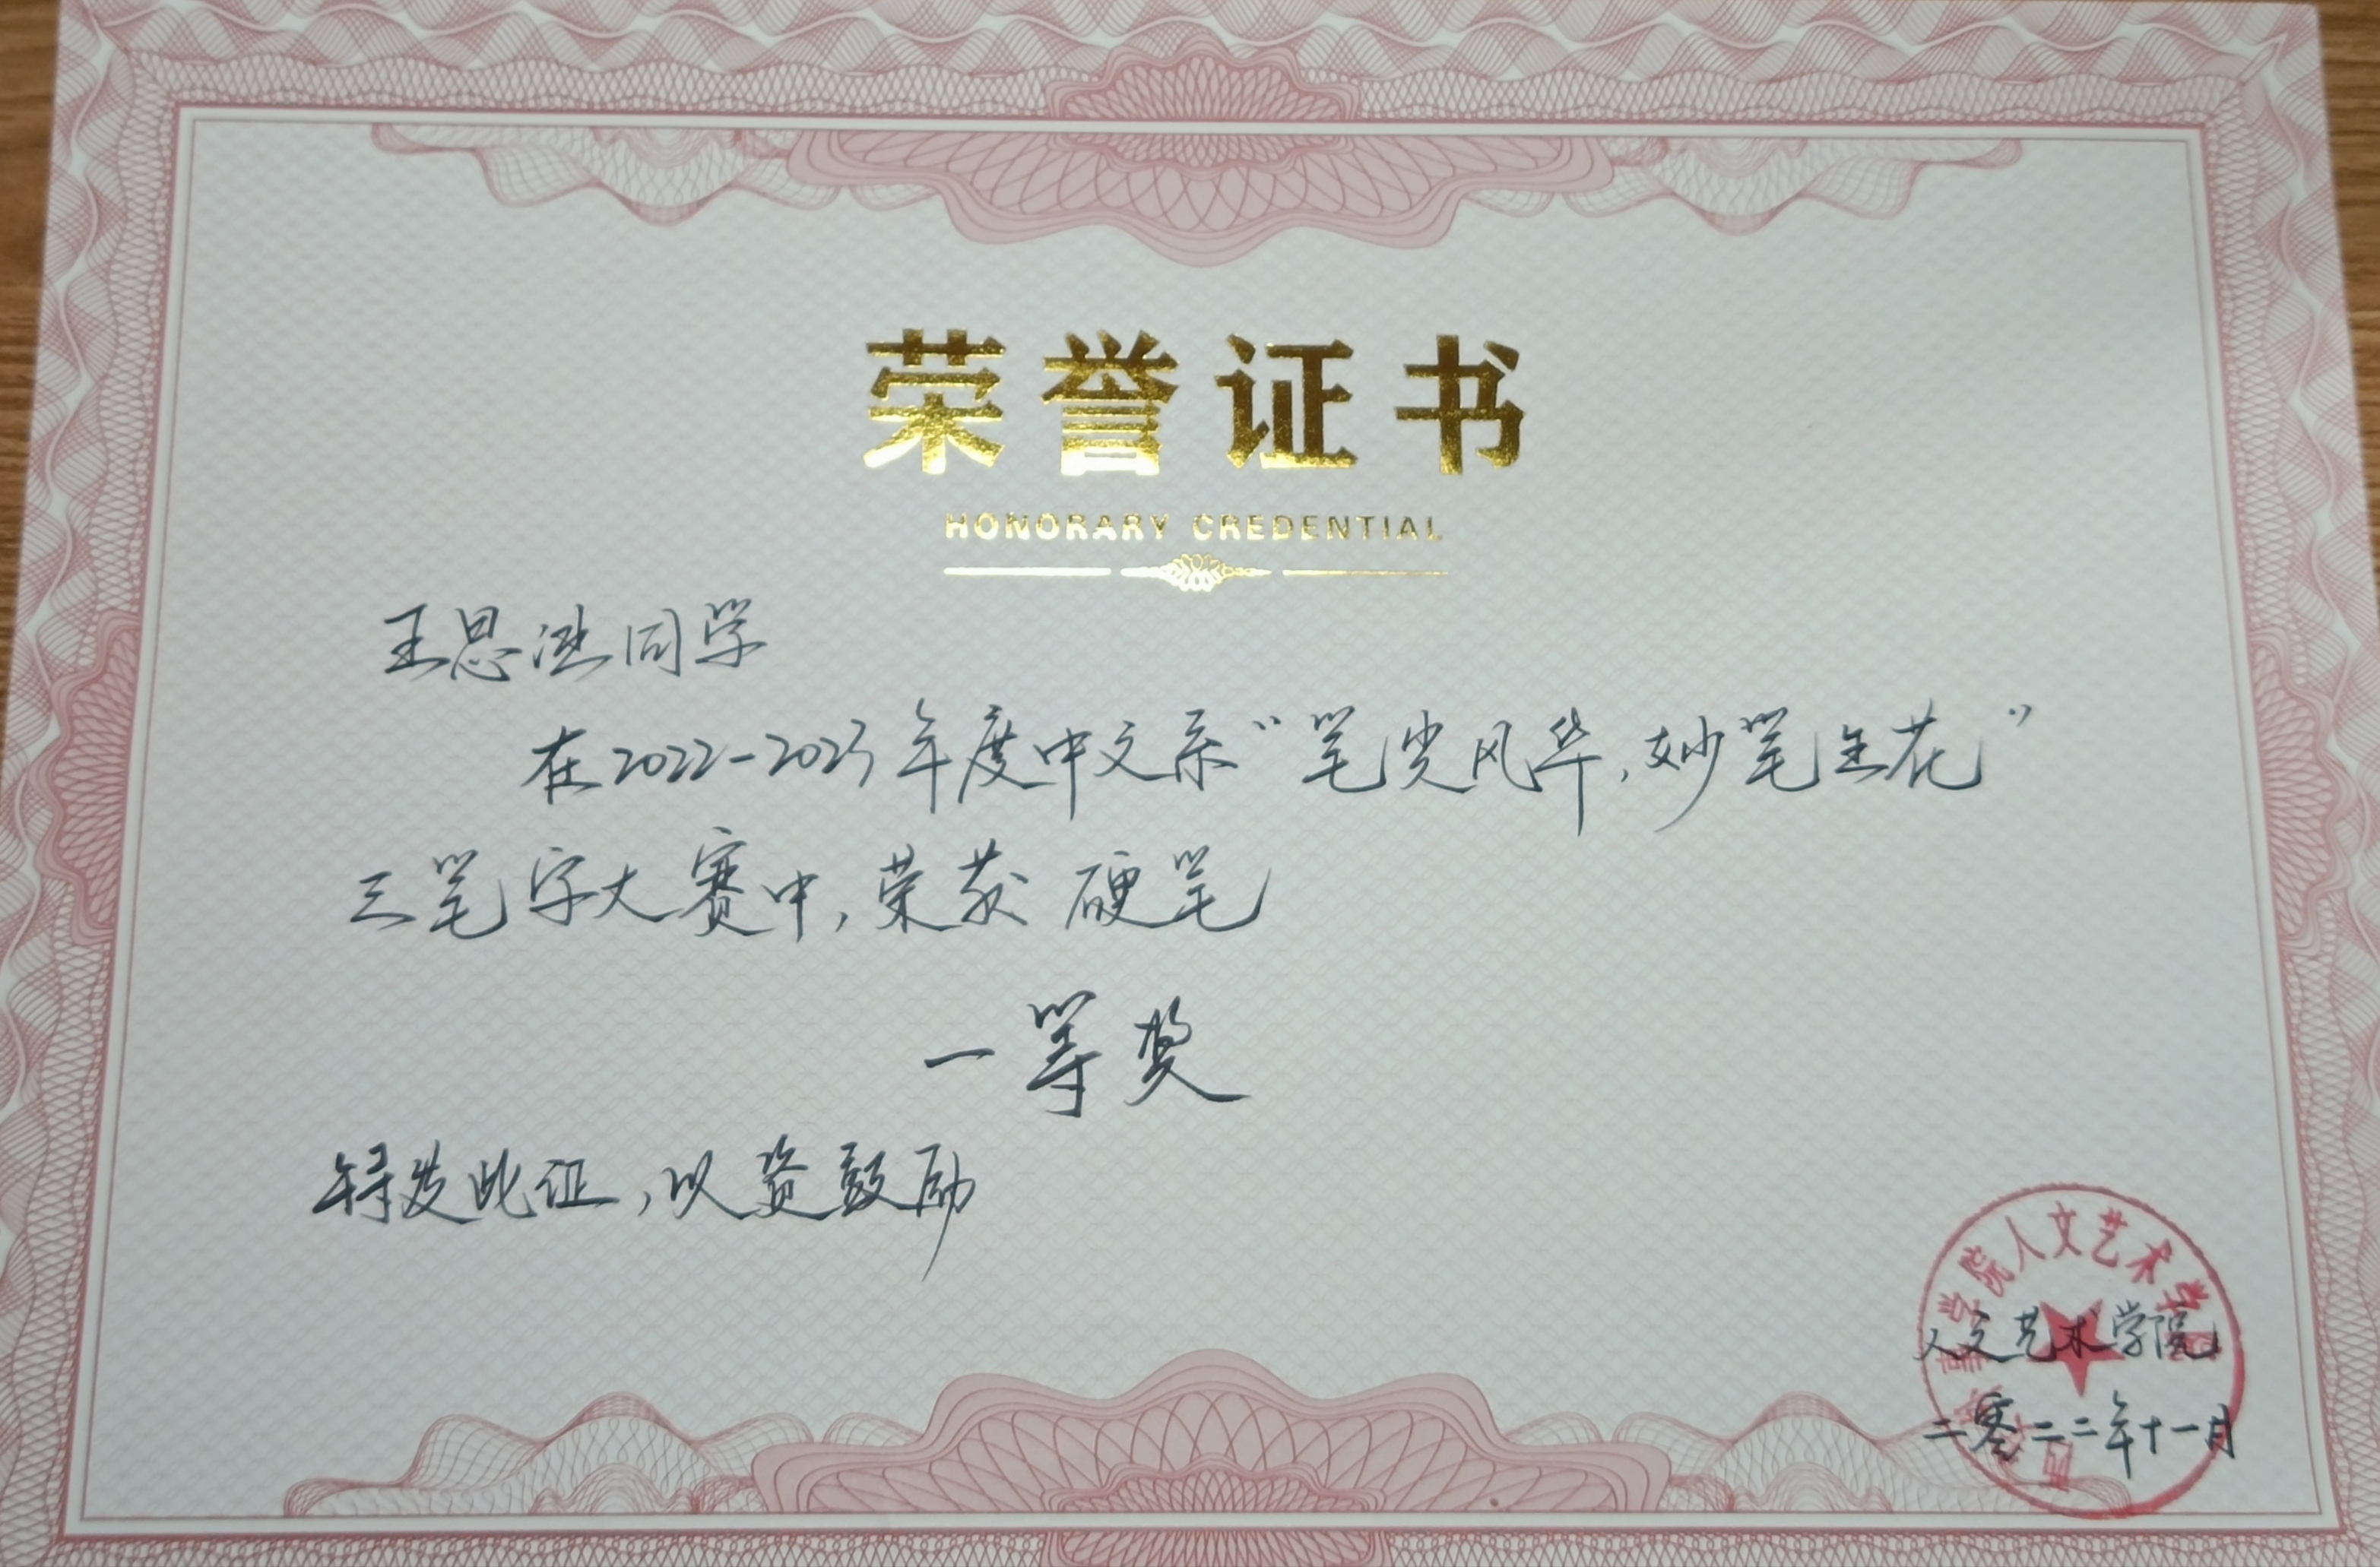 荣誉证书
HONORARY CREDENTIAL
王思涟同学
在2022-2023年度中文系“笔尖风华,妙笔生花”
三笔字大赛中,荣获 硬笔
一等奖
特发此证,以资鼓励
学院人文艺术学院
人文艺术学院
二零二二年十一月